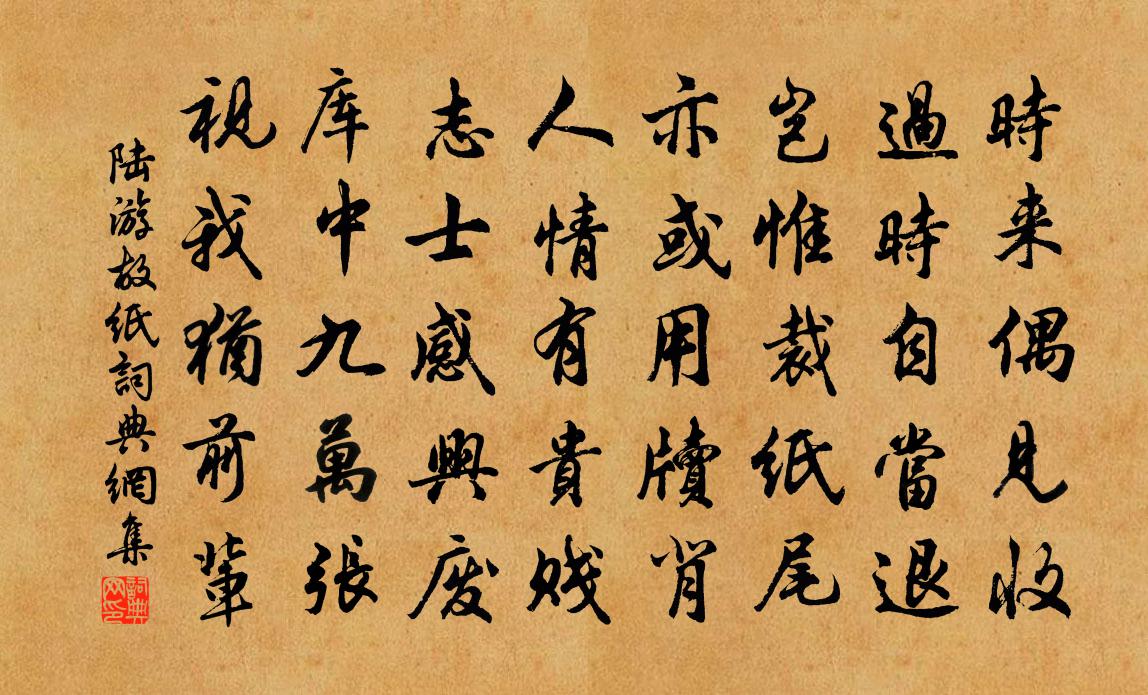 時来偶見收
過時自當退
岂惟裁紙尾
亦或用牘背
人情有貴贱
志士感興废
库中九萬張
視我猶前輩
陆游故紙詞典網集
詞典网印